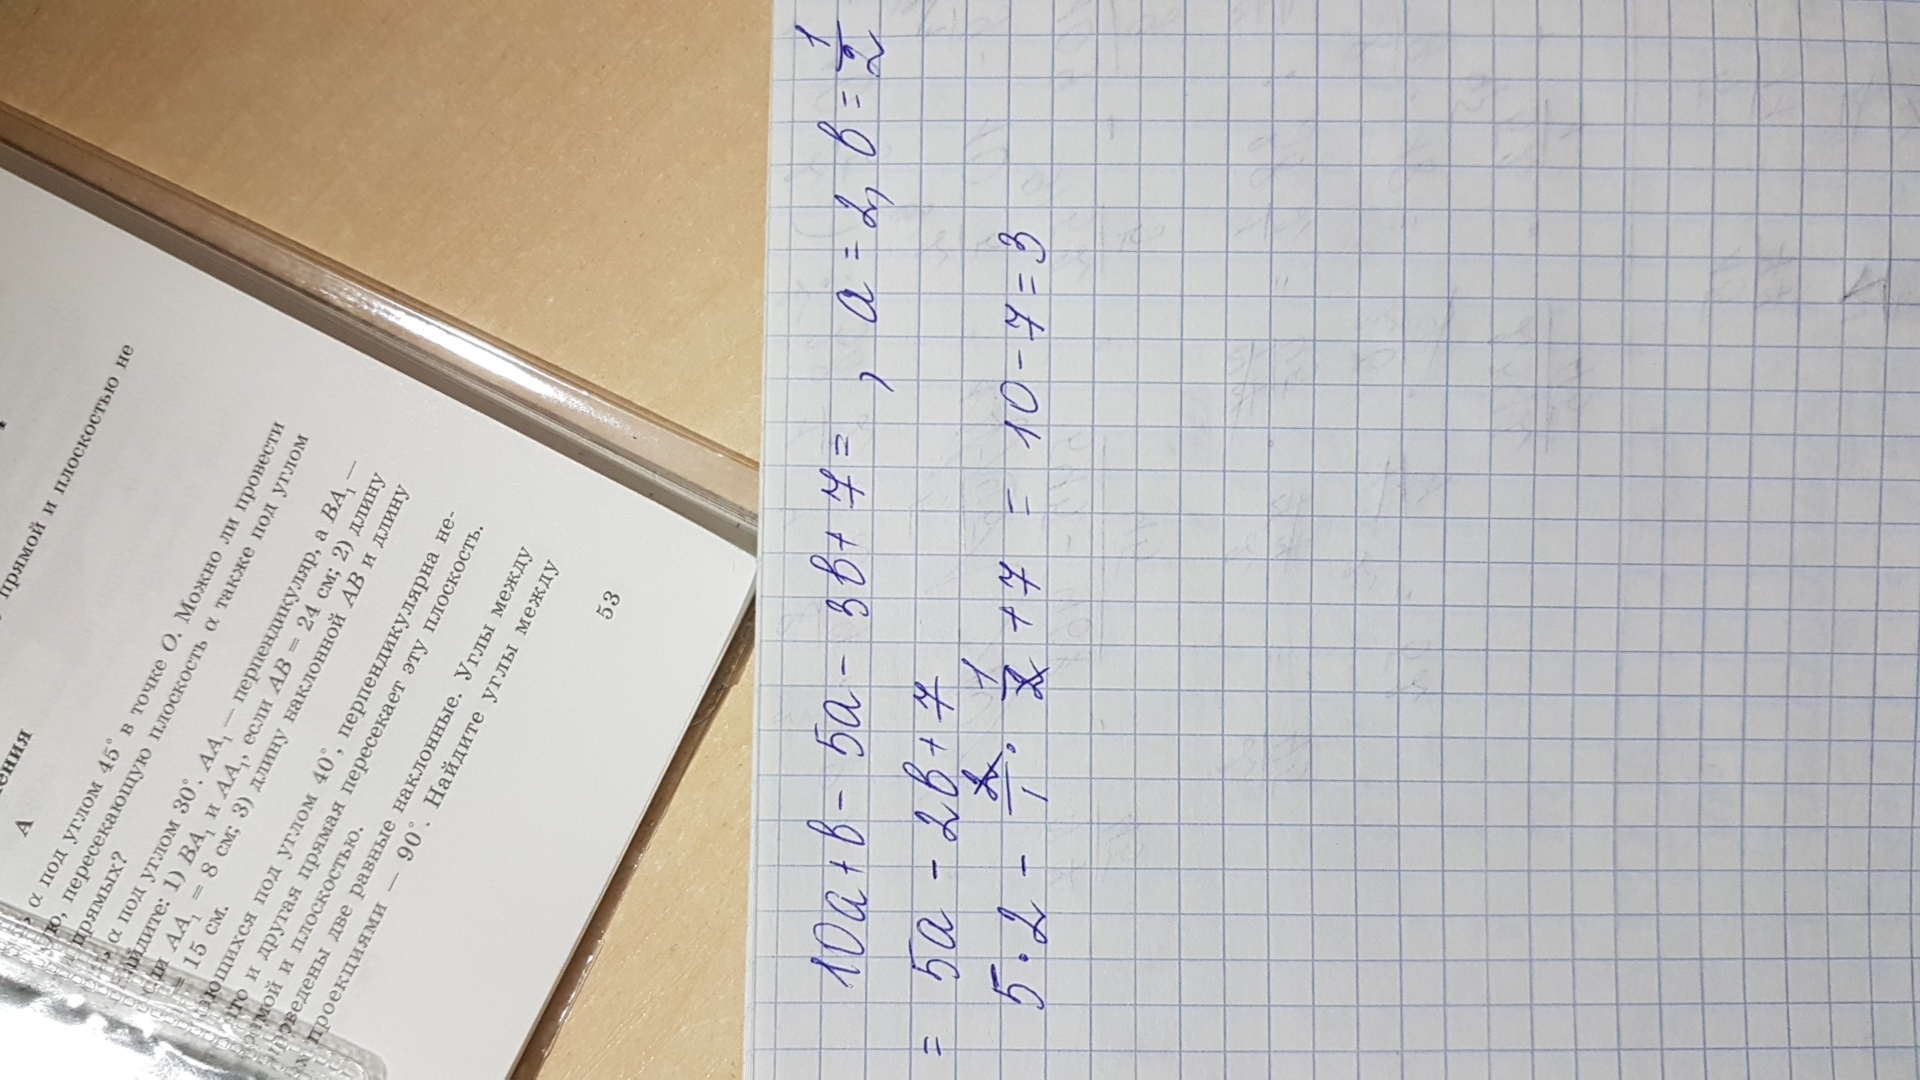 прямой и плоскостью не
ения
А
α под углом 45° в точке O. Можно ли провести
пересекающую плоскость α также под углом
прямых?
α под углом 30°. AA₁ — перпендикуляр, а BA₁ —
айдите: 1) BA₁ и AA₁, если AB = 24 см; 2) длину
AA₁ = 8 см; 3) длину наклонной AB и длину
= 15 см.
ающихся под углом 40°, перпендикулярна не-
что и другая прямая пересекает эту плоскость.
мой и плоскостью.
оведены две равные наклонные. Углы между
х проекциями — 90°. Найдите углы между
53
10a+b-5a-3b+7= , a=2, b=1/2
= 5a-2b+7
5·2-2/1·1/2+7=10-7=3